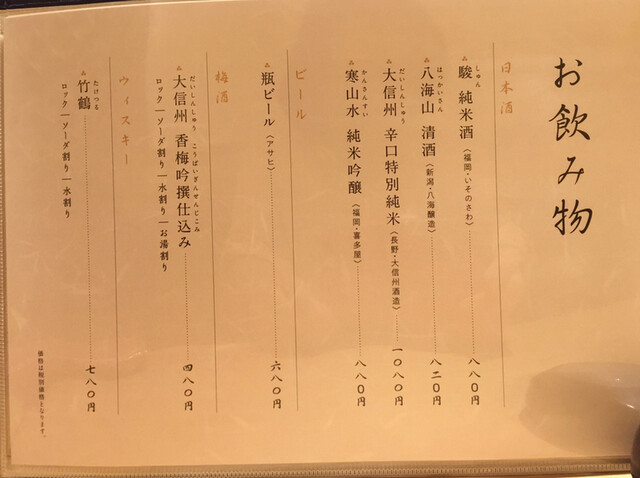 お飲み物
日本酒
駿 純米酒〈福岡・いそのさわ〉 八八〇円
しゅん
八海山 清酒〈新潟・八海醸造〉 八二〇円
はっかいさん
大信州 辛口特別純米〈長野・大信州酒造〉 一〇八〇円
だいしんしゅう
寒山水 純米吟醸〈福岡・喜多屋〉 八八〇円
かんさんすい
ビール
瓶ビール〈アサヒ〉 六八〇円
梅酒
大信州 香梅吟撰仕込み 四八〇円
だいしんしゅう こうばいぎんせんじこみ
ロック｜ソーダ割り｜水割り｜お湯割り
ウィスキー
竹鶴 七八〇円
たけつる
ロック｜ソーダ割り｜水割り
価格は税別価格となります。